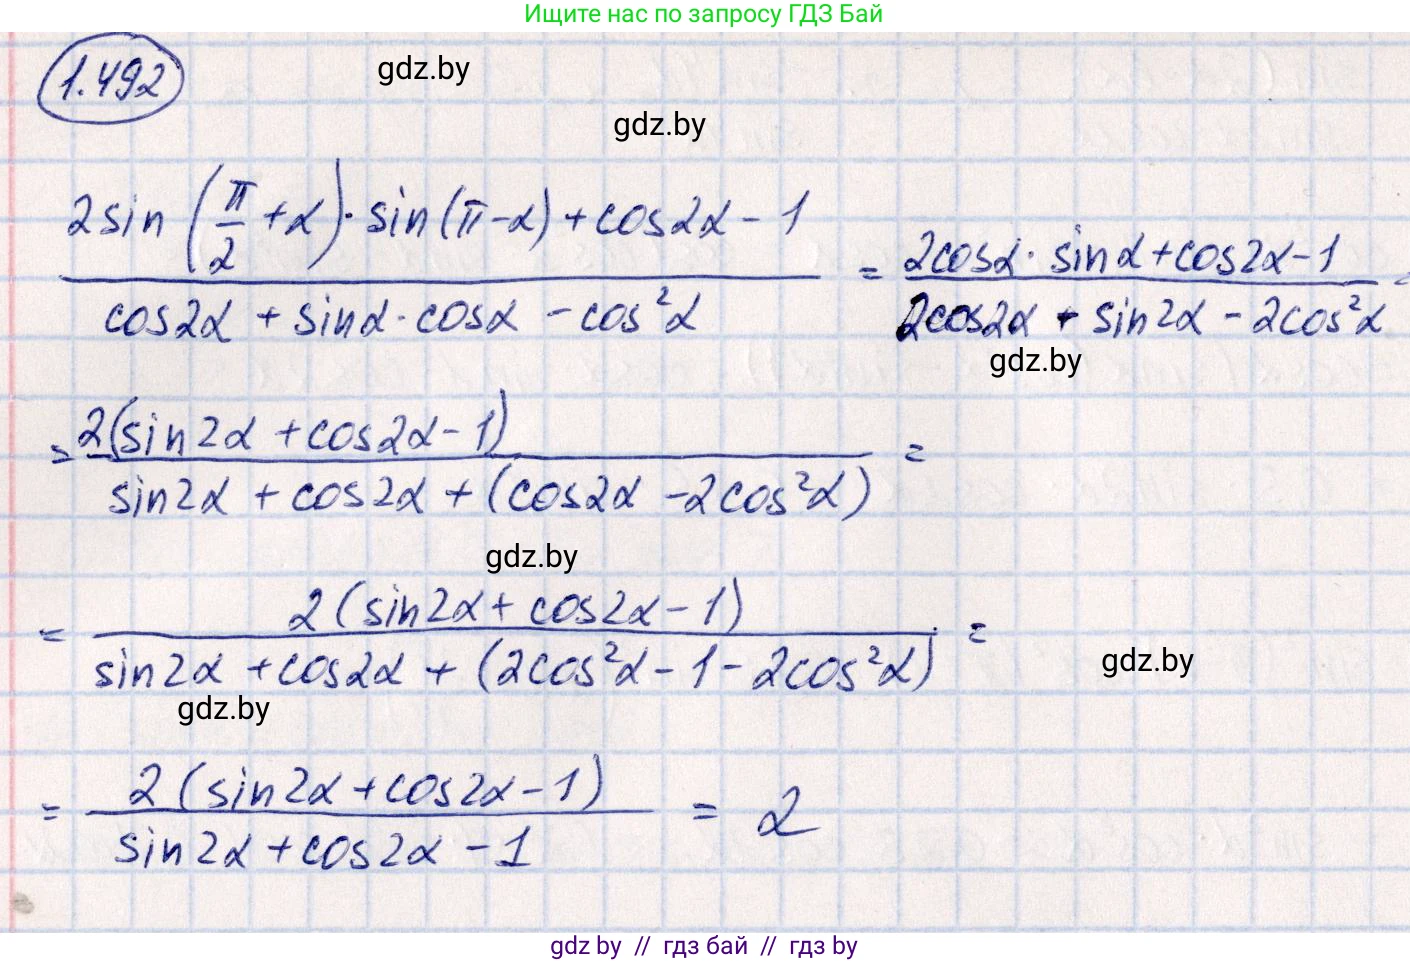 Ищите нас по запросу ГДЗ Бай
1.492
gdz.by
gdz.by
2sin (π/2 + α) · sin(π - α) + cos2α - 1 / cos2α + sinα · cosα - cos²α = 2cosα · sinα + cos2α - 1 / 2cos2α + sin2α - 2cos²α =
gdz.by
= 2(sin2α + cos2α - 1) / sin2α + cos2α + (cos2α - 2cos²α) =
gdz.by
= 2(sin2α + cos2α - 1) / sin2α + cos2α + (2cos²α - 1 - 2cos²α) =
gdz.by
gdz.by
= 2(sin2α + cos2α - 1) / sin2α + cos2α - 1 = 2
gdz.by // гдз бай // гдз by